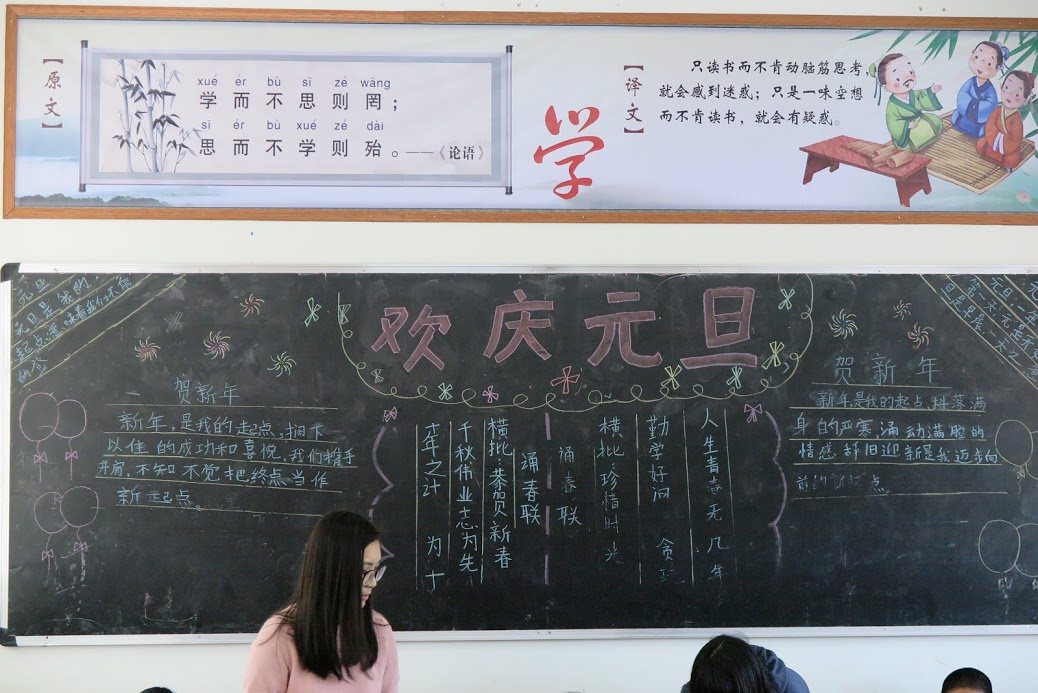 【原文】
xué ér bù sī zé wǎng
学而不思则罔；
sī ér bù xué zé dài
思而不学则殆。——《论语》
学
【译文】
只读书而不肯动脑筋思考，
就会感到迷惑；只是一味空想
而不肯读书，就会有疑惑。
欢庆元旦
元旦
元旦是我的
贺新年
新年，是我的起点，搁下
以往的成功和喜悦，我们携手
并肩，不知不觉把终点当作
新起点。
人生青春无几年
勤学好问
横批：珍惜时光
诵春联
诵春联
横批：恭贺新春
千秋伟业志为先
年之计 为
贺新年
新年是我的起点，抖落满
身的严寒，涌动满腔的
情感，辞旧迎新是我迈步向
点。